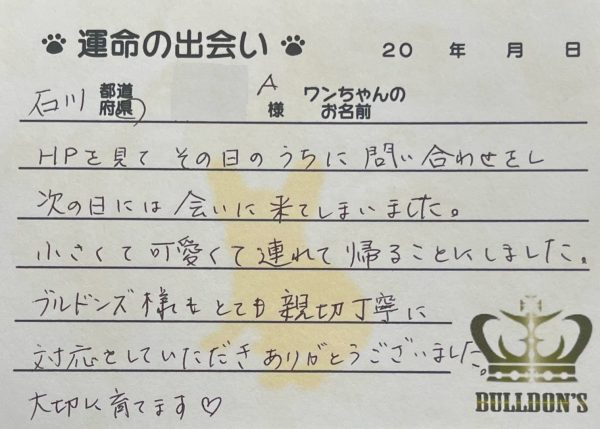 運命の出会い 20 年 月 日
石川 都道府県 A 様 ワンちゃんのお名前
HPを見て その日のうちに 問い合わせをし
次の日には 会いに来てしまいました。
小さくて可愛くて連れて帰ることにしました。
ブルドンズ様もとても親切丁寧に
対応をしていただきありがとうございました。
大切に育てます♡
BULLDON'S